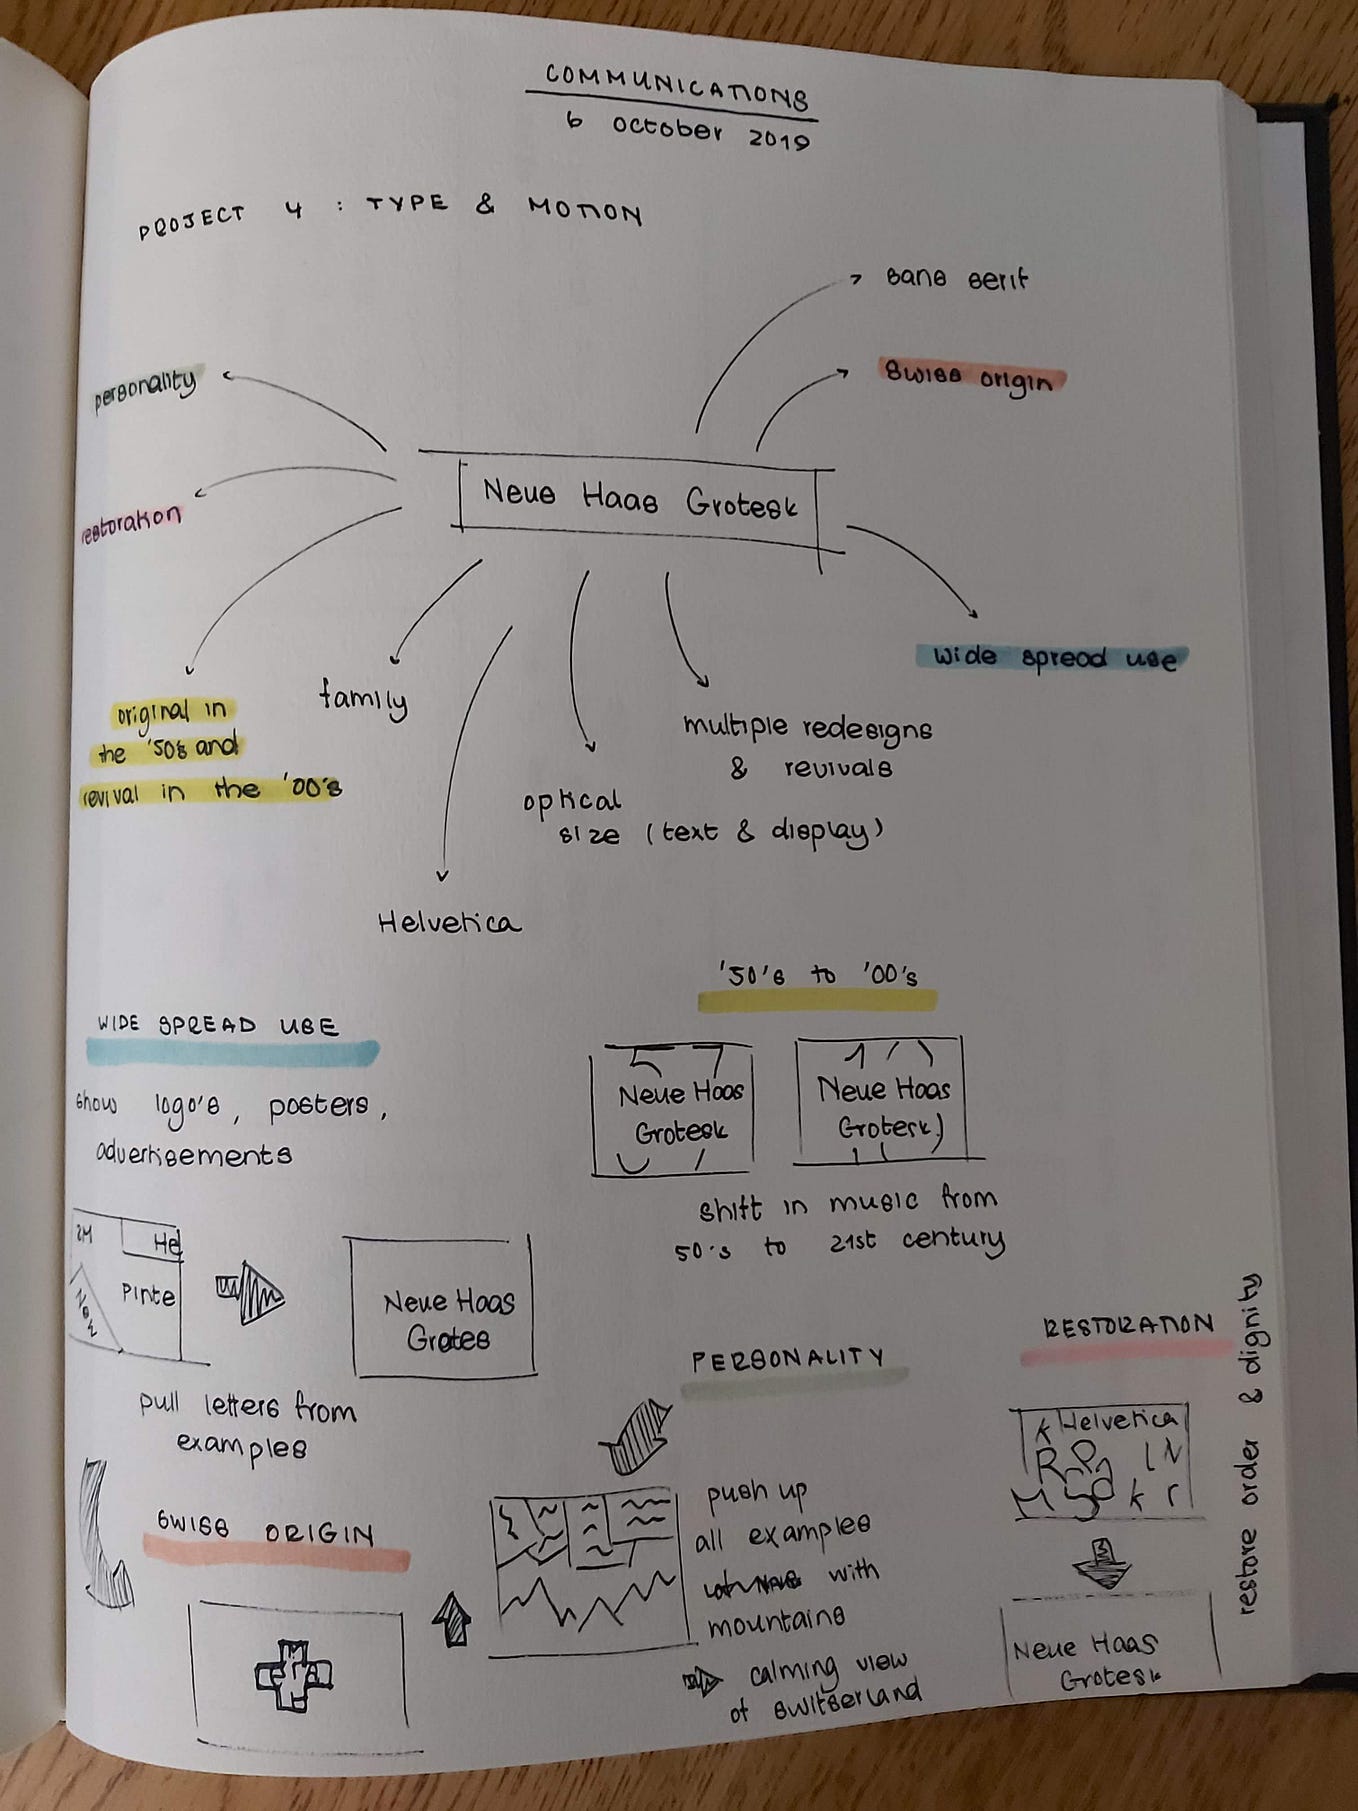 COMMUNICATIONS
6 october 2019
PROJECT 4 : TYPE & MOTION
sans serif
Swiss origin
personality
restoration
Neue Haas Grotesk
wide spread use
original in
the '50's and
revival in the '00's
family
multiple redesigns
& revivals
optical
size (text & display)
Helvetica
'50's to '00's
57
Neue Haas
Grotesk
Neue Haas
Grotesk
shift in music from
50's to 21st century
WIDE SPREAD USE
show logo's, posters,
advertisements
He
Pinte
Neue Haas
Grotes
pull letters from
examples
SWISS ORIGIN
PERSONALITY
push up
all examples
with
mountains
calming view
of switserland
RESTORATION
K Helvetica
Neue Haas
Grotesk
restore order & dignity